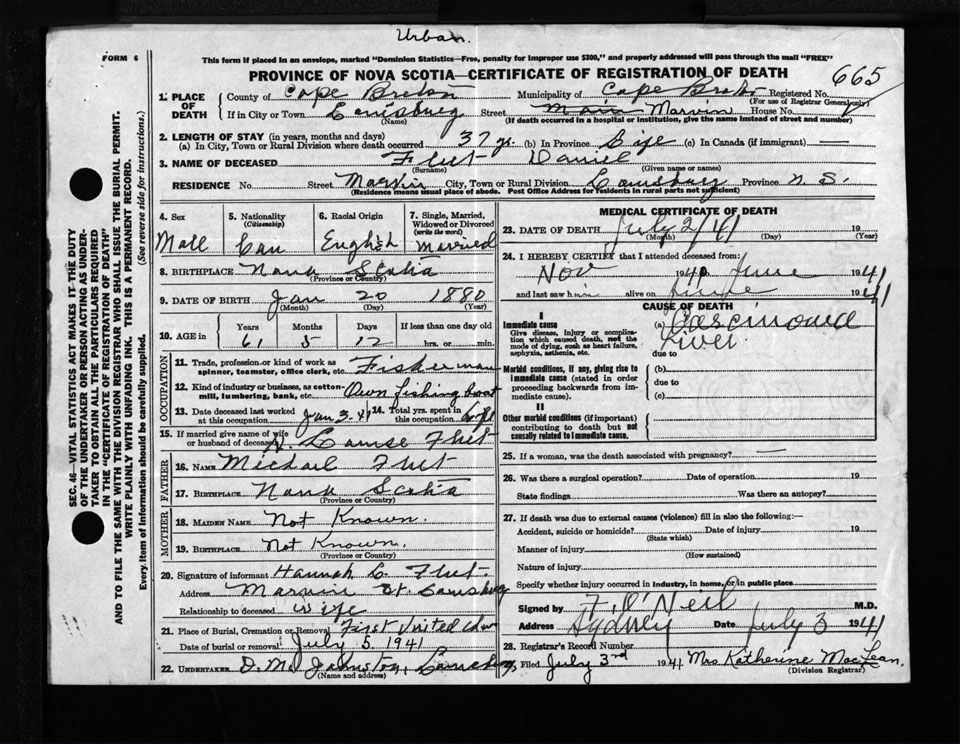 Urban.
FORM 6
This form if placed in an envelope, marked "Dominion Statistics—Free, penalty for improper use $300," and properly addressed will pass through the mail "FREE"
PROVINCE OF NOVA SCOTIA—CERTIFICATE OF REGISTRATION OF DEATH
665
1. PLACE OF DEATH
County of Cape Breton Municipality of Cape Breton Registered No.
(For use of Registrar General only)
If in City or Town Louisburg Street Main Marvin House No.
(Name) (If death occurred in a hospital or institution, give the name instead of street and number)
2. LENGTH OF STAY (in years, months and days)
(a) In City, Town or Rural Division where death occurred 37 yr. (b) In Province Life (c) In Canada (if immigrant) —
3. NAME OF DECEASED Daniel
(Surname) (Given name or names)
RESIDENCE No. Street Marvin City, Town or Rural Division Louisburg Province N. S.
(Residence means usual place of abode. Post Office Address for residents in rural parts not sufficient)
4. Sex
Male
5. Nationality
(Citizenship)
Can
6. Racial Origin
English
7. Single, Married, Widowed or Divorced
(write the word)
Married
8. BIRTHPLACE Nova Scotia
(Province or Country)
9. DATE OF BIRTH Jan 20 1880
(Month) (Day) (Year)
10. AGE in
Years Months Days If less than one day old
61 5 12 hrs. or min.
OCCUPATION
11. Trade, profession or kind of work as spinner, teamster, office clerk, etc. Fisherman
12. Kind of industry or business, as cotton-mill, lumbering, bank, etc. Own fishing boat
13. Date deceased last worked at this occupation Jan 3-41
14. Total yrs. spent in this occupation
15. If married give name of wife or husband of deceased Louise
FATHER
16. NAME Michael
17. BIRTHPLACE Nova Scotia
(Province or Country)
MOTHER
18. MAIDEN NAME Not Known.
19. BIRTHPLACE Not Known.
(Province or Country)
20. Signature of informant Hannah L.
Address St. Louisburg
Relationship to deceased wife
21. Place of Burial, Cremation or Removal First United
Date of burial or removal July 5, 1941
22. UNDERTAKER D. M. Johnston, Louisburg
(Name and address)
MEDICAL CERTIFICATE OF DEATH
23. DATE OF DEATH July 2/41 19
(Month) (Day) (Year)
24. I HEREBY CERTIFY that I attended deceased from:
Nov 1940 June 1941
and last saw him alive on June 1941
CAUSE OF DEATH
I
Immediate cause
Give disease, injury or complication which caused death, not the mode of dying, such as heart failure, asphyxia, asthenia, etc.
(a) Carcinoma Liver
due to
Morbid conditions, if any, giving rise to immediate cause (stated in order proceeding backwards from immediate cause).
(b)
due to
(c)
II
Other morbid conditions (if important) contributing to death but not causally related to immediate cause.
25. If a woman, was the death associated with pregnancy? —
26. Was there a surgical operation? Date of operation 19
State findings Was there an autopsy?
27. If death was due to external causes (violence) fill in also the following:—
Accident, suicide or homicide? Date of injury 19
(State which)
Manner of injury
(How sustained)
Nature of injury
Specify whether injury occurred in industry, in home, or in public place
Signed by F. O'Neil M.D.
Address Sydney Date July 3 1941
28. Registrar's Record Number
Filed July 3rd 1941 Mrs Katherine MacLean.
(Division Registrar)
SEC. 46—VITAL STATISTICS ACT MAKES IT THE DUTY
OF THE UNDERTAKER OR PERSON ACTING AS UNDER-
TAKER TO OBTAIN ALL THE PARTICULARS REQUIRED
IN THE "CERTIFICATE OF REGISTRATION OF DEATH"
AND TO FILE THE SAME WITH THE DIVISION REGISTRAR WHO SHALL ISSUE THE BURIAL PERMIT.
WRITE PLAINLY WITH UNFADING INK. THIS IS A PERMANENT RECORD.
Every item of Information should be carefully supplied. (See reverse side for instructions.)